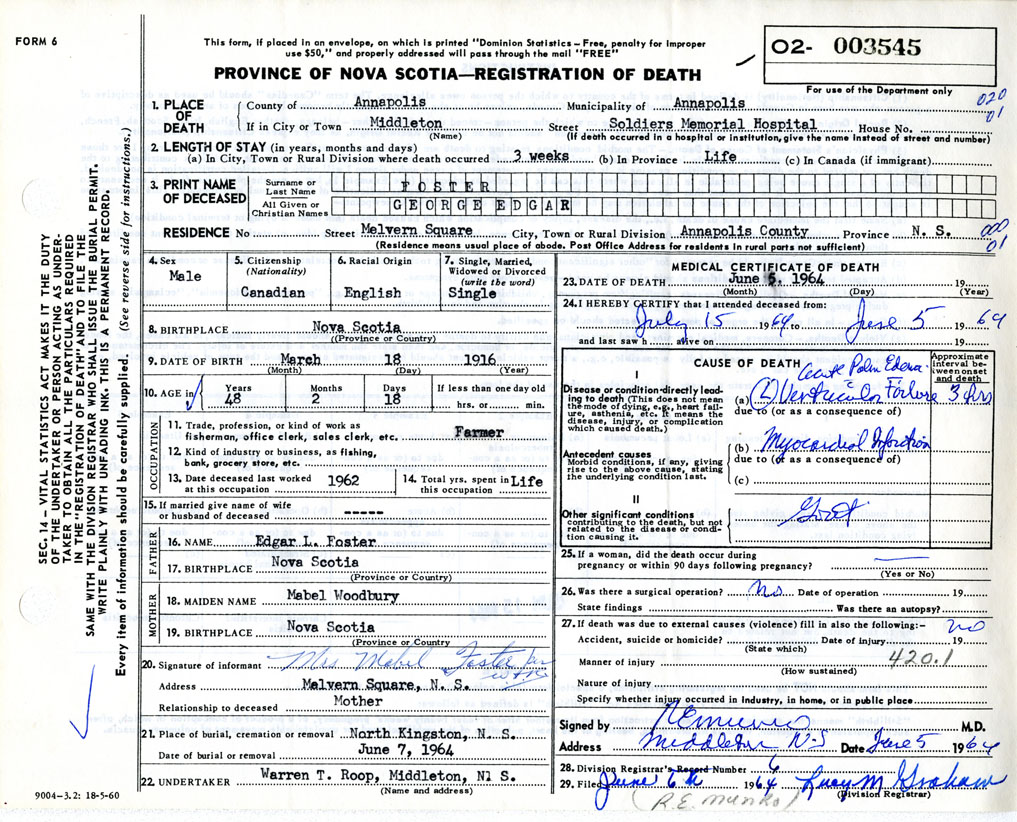 FORM 6
This form, if placed in an envelope, on which is printed "Dominion Statistics – Free, penalty for improper
use $50," and properly addressed will pass through the mail "FREE"
O2- 003545
PROVINCE OF NOVA SCOTIA—REGISTRATION OF DEATH
For use of the Department only
020
01
1. PLACE OF DEATH
County of Annapolis Municipality of Annapolis
If in City or Town Middleton Street Soldiers Memorial Hospital House No.
(Name) (If death occurred in a hospital or institution, give the name instead of street and number)
2. LENGTH OF STAY (in years, months and days)
(a) In City, Town or Rural Division where death occurred 3 weeks (b) In Province Life (c) In Canada (if immigrant)
3. PRINT NAME OF DECEASED
Surname or Last Name FOSTER
All Given or Christian Names GEORGE EDGAR
RESIDENCE No Street Melvern Square City, Town or Rural Division Annapolis County Province N. S.
000
01
(Residence means usual place of abode. Post Office Address for residents in rural parts not sufficient)
4. Sex
Male
5. Citizenship (Nationality)
Canadian
6. Racial Origin
English
7. Single, Married, Widowed or Divorced (write the word)
Single
8. BIRTHPLACE Nova Scotia
(Province or Country)
9. DATE OF BIRTH March 18 1916
(Month) (Day) (Year)
10. AGE in
Years Months Days If less than one day old
48 2 18 hrs. or min.
OCCUPATION
11. Trade, profession, or kind of work as fisherman, office clerk, sales clerk, etc. Farmer
12. Kind of industry or business, as fishing, bank, grocery store, etc.
13. Date deceased last worked at this occupation 1962
14. Total yrs. spent in this occupation Life
15. If married give name of wife or husband of deceased -----
FATHER
16. NAME Edgar L. Foster
17. BIRTHPLACE Nova Scotia
(Province or Country)
MOTHER
18. MAIDEN NAME Mabel Woodbury
19. BIRTHPLACE Nova Scotia
(Province or Country
20. Signature of informant Mrs Mabel Foster per
Address Melvern Square, N. S.
Relationship to deceased Mother
21. Place of burial, cremation or removal North Kingston, N. S.
Date of burial or removal June 7, 1964
22. UNDERTAKER Warren T. Roop, Middleton, Nl S.
(Name and address)
9004-3.2: 18-5-60
SEC. 14 – VITAL STATISTICS ACT MAKES IT THE DUTY
OF THE UNDERTAKER OR PERSON ACTING AS UNDER-
TAKER TO OBTAIN ALL THE PARTICULARS REQUIRED
IN THE "REGISTRATION OF DEATH" AND TO FILE THE
SAME WITH THE DIVISION REGISTRAR WHO SHALL ISSUE THE BURIAL PERMIT.
WRITE PLAINLY WITH UNFADING INK. THIS IS A PERMANENT RECORD.
Every item of information should be carefully supplied. (See reverse side for instructions.)
MEDICAL CERTIFICATE OF DEATH
23. DATE OF DEATH June 5, 1964 19
(Month) (Day) (Year)
24. I HEREBY CERTIFY that I attended deceased from:
July 15 1964 to June 5 1964
and last saw h alive on 19
CAUSE OF DEATH
Approximate interval between onset and death
I
Disease or condition directly lead-
ing to death (This does not mean
the mode of dying, e.g., heart fail-
ure, asthenia, etc. It means the
disease, injury, or complication
which caused death.)
Acute Pulm Edema
(a) (L) Ventricular Failure 3 hrs
due to (or as a consequence of)
Antecedent causes
Morbid conditions, if any, giving
rise to the above cause, stating
the underlying condition last.
(b) Myocardial Infarction
due to (or as a consequence of)
(c)
II
Other significant conditions
contributing to the death, but not
related to the disease or condi-
tion causing it.
Gout
25. If a woman, did the death occur during
pregnancy or within 90 days following pregnancy?
(Yes or No)
26. Was there a surgical operation? No Date of operation 19
State findings Was there an autopsy?
27. If death was due to external causes (violence) fill in also the following:- no
Accident, suicide or homicide? Date of injury 19
(State which)
420.1
Manner of injury
(How sustained)
Nature of injury
Specify whether injury occurred in industry, in home, or in public place
Signed by REMunro M.D.
Address Middleton N-S Date June 5 1964
28. Division Registrar's Record Number 6
29. Filed June 6th 1964 Lucy M Graham
(Division Registrar)
(R.E. Munro)